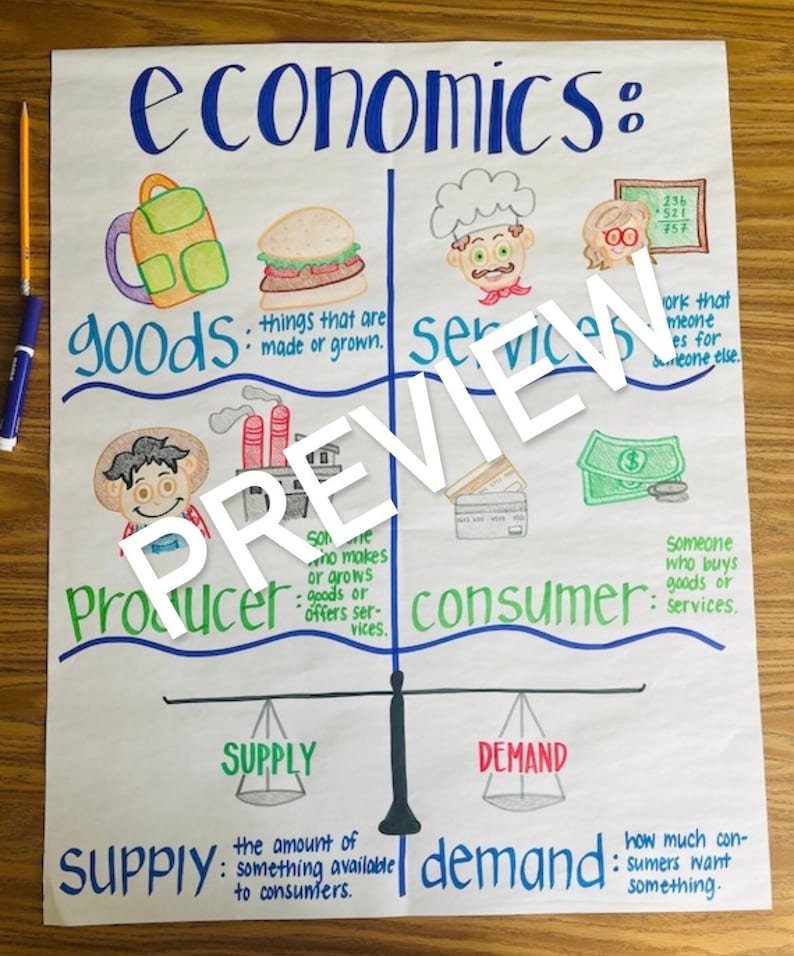 economics:
236
+521
757
goods: things that are
made or grown.
services: work that
someone
does for
someone else.
PREVIEW
$
producer: someone
who makes
or grows
goods or
offers ser-
vices.
consumer: someone
who buys
goods or
services.
SUPPLY
DEMAND
supply: the amount of
something available
to consumers.
demand: how much con-
sumers want
something.